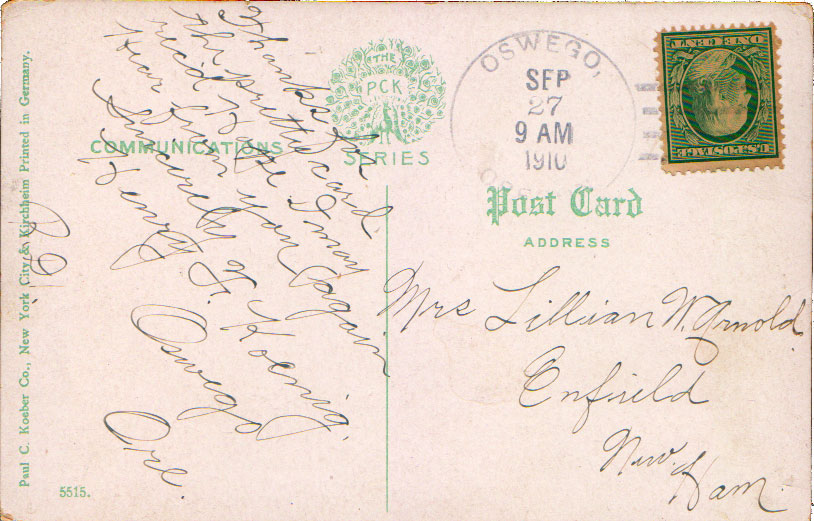 Thanks for
the pretty card
rec'd. Hope I may
hear from you again
Sincerely
Henry F. Koenig.
Oswego
Ore.
COMMUNICATIONS
THE
PCK
SERIES
OSWEGO,
SEP
27
9 AM
1910
ONE CENT
U.S. POSTAGE
Post Card
ADDRESS
Mrs Lillian W. Arnold
Enfield
New. Ham.
Paul C. Koeber Co., New York City & Kirchheim Printed in Germany.
5515.